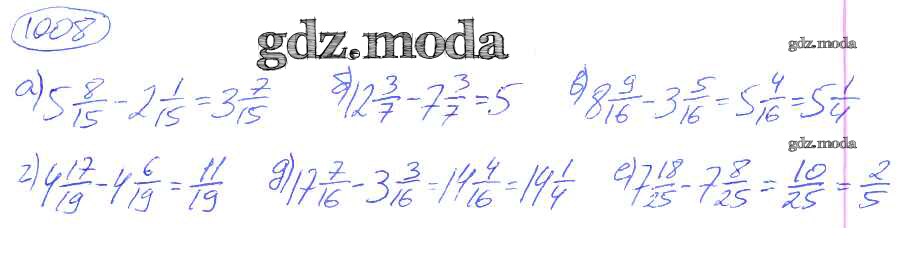 1008
gdz.moda
gdz.moda
а) 5 8/15 - 2 1/15 = 3 7/15 б) 12 3/7 - 7 3/7 = 5 в) 8 9/16 - 3 5/16 = 5 4/16 = 5 1/4
gdz.moda
г) 4 17/19 - 4 6/19 = 11/19 д) 17 7/16 - 3 3/16 = 14 4/16 = 14 1/4 е) 7 18/25 - 7 8/25 = 10/25 = 2/5